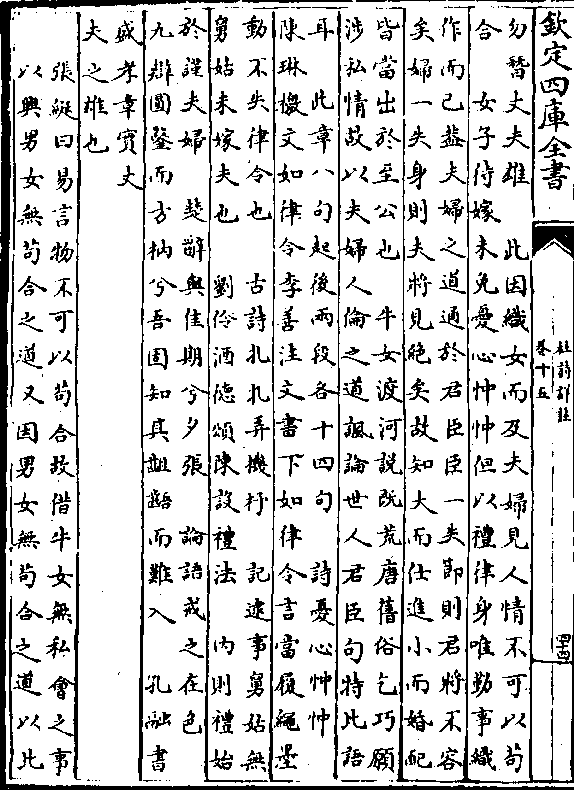 欽定四庫全書
杜詩詳註
卷十五
四十四
勿替丈夫雄　此因織女而及夫婦見人情不可以苟
合　女子待嫁未免憂心忡忡但以禮律身唯勤事織
作而已葢夫婦之道通於君臣臣一失節則君將不容
矣婦一失身則夫將見絶矣故知大而仕進小而婚配
皆當出於至公也　牛女渡河説既荒唐舊俗乞巧願
涉私情故以夫婦人倫之道諷論世人君臣句特比語
耳　此章八句起後兩段各十四句　詩憂心忡忡
陳琳檄文如律令李善注文書下如律令言當履繩墨
動不失律令也　古詩扎扎弄機杼　記逮事舅姑無
舅姑未嫁夫也　劉伶酒德頌陳設禮法　内則禮始
於謹夫婦　楚辭與佳期兮夕張　論語戒之在色
九辯圜鑿而方枘兮吾固知其齟齬而難入　孔融書
盛孝章實丈
夫之雄也
張綖曰易言物不可以苟合故借牛女無私會之事
以興男女無苟合之道又因男女無苟合之道以此